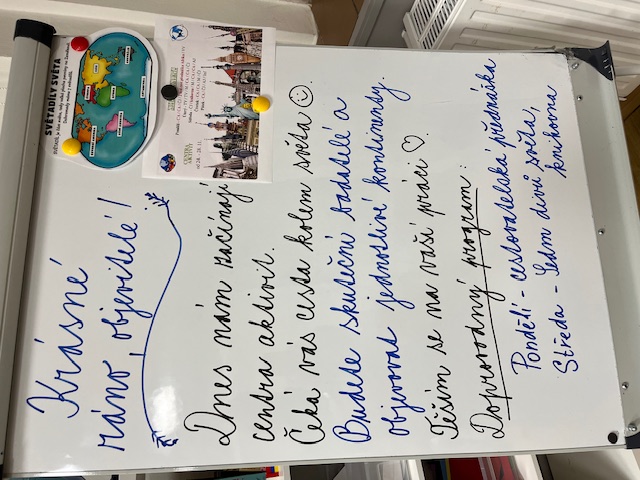 SVĚTADÍLY SVĚTA
CENTRA
AKTIVIT
Krásné
ráno, objevitelé!
Dnes nám začínají
centra aktivit.
Čeká vás cesta kolem světa ☺.
Budete skuteční badatelé a
objevovat jednotlivé kontinenty.
Těším se na vaši práci ♡.
Doprovodný program:
Pondělí - cestovatelská přednáška
Středa - Sedm divů světa,
knihovna